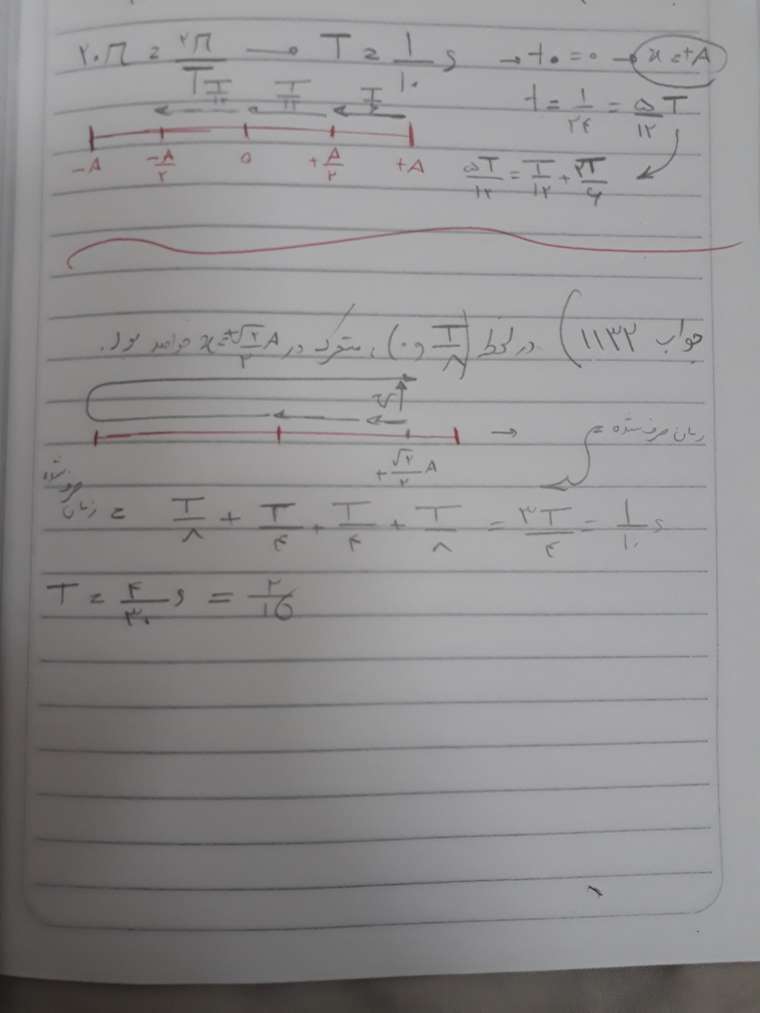 ۲۰π = ۲π/T → T = ۱/۱۰ s → t۰ = ۰ → x = +A
T/۱۲ T/۱۲ T/۶ t = ۱/۲۴ = ۵T/۱۲
-A -A/۲ ۰ +A/۲ +A
۵T/۱۲ = T/۱۲ + ۲T/۶
جواب ۱۱۳۲) در لحظه (۰ و T/۸)، متحرک در x = +√۲/۲ A خواهد بود.
+√۲/۲ A → زمان صرف شده =
زمان صرف شده = T/۸ + T/۴ + T/۴ + T/۸ = ۳T/۴ = ۱/۱۰ s
T = ۴/۳۰ s = ۲/۱۵